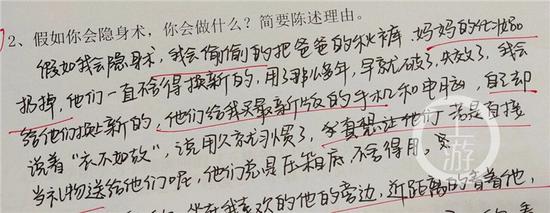 2、假如你会隐身术,你会做什么?简要陈述理由。
假如我会隐身术,我会偷偷的把爸爸的秋裤、妈妈的化妆品
扔掉,他们一直舍得换新的,用了那么多年,早就破了、失效了,我会
给他们换上新的,他们给我买最新版的手机和电脑,自己却
说着“衣不如故”,说用久就习惯了,我真想让他们
当礼物送给他们呢,他们总是压箱底,不舍得用。
坐在我喜欢的他的旁边,近距离的看着他,
上游